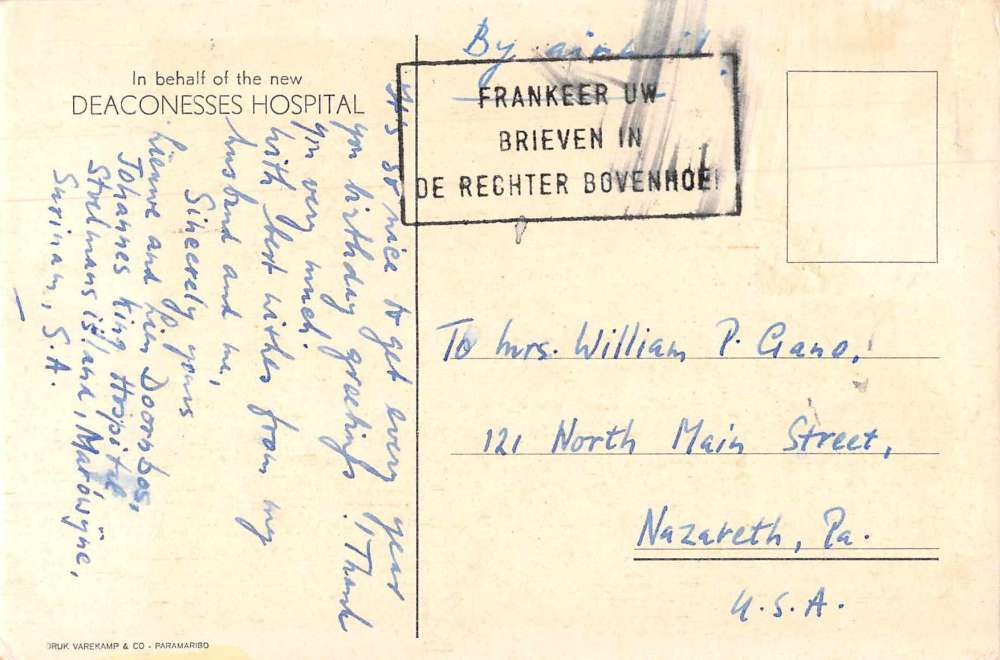 In behalf of the new
DEACONESSES HOSPITAL
It's so nice to get every year
you birthday greetings. Thank
you very much,
with best wishes from my
husband and me,
Sincerely yours
Lieuwe and Lien Doornbos,
Johannes King Hospital
Stoelmans island, Marówijne,
Surinam, S.A.
DRUK VAREKAMP & CO - PARAMARIBO
By airmail.
FRANKEER UW
BRIEVEN IN
DE RECHTER BOVENHOEK
To Mrs. William P. Gano,
121 North Main Street,
Nazareth, Pa.
U.S.A.